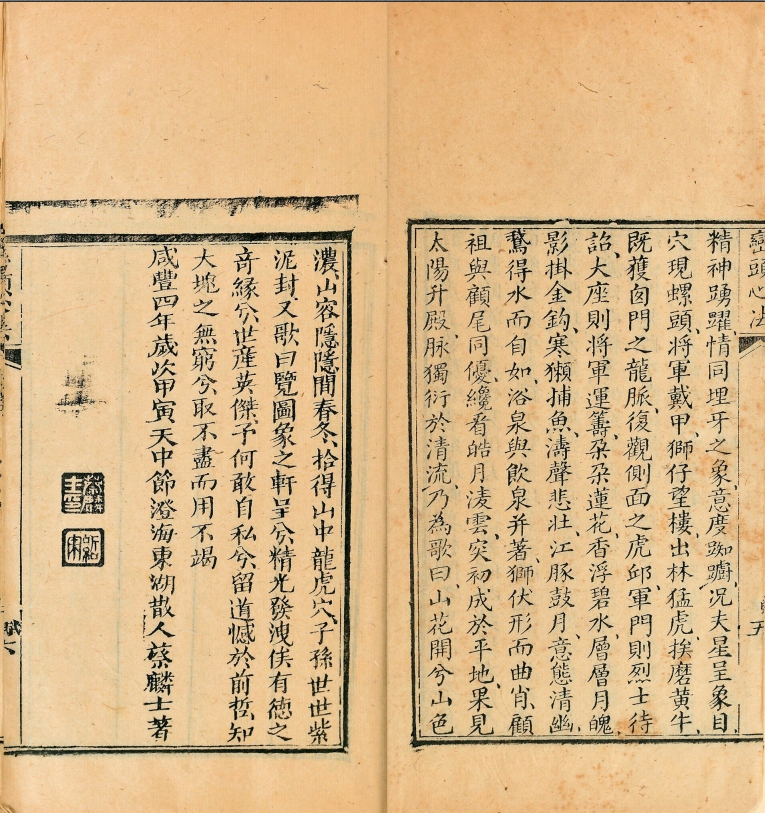 巒頭心法
精神踴躍情同埋牙之象意度踟躕況夫星呈象目
穴現螺頭將軍戴甲獅仔望樓出林猛虎挨磨黃牛
既獲囪門之龍脈復觀側面之虎邱軍門則烈士待
詔大座則將軍運籌朶朶蓮花香浮碧水層層月魄
影掛金鈎寒獺捕魚濤聲悲壯江豚鼓月意態清幽
鵞得水而自如浴泉與飲泉并著獅伏形而曲肖顧
祖與顧尾同優纔看皓月凌雲突初成於平地果見
太陽升殿脉獨衍於清流乃為歌曰山花開兮山色
濃山容隱隱閒春冬拾得山中龍虎穴子孫世世紫
泥封又歌曰覽圖象之軒呈兮精光發洩俟有德之
奇緣兮世産英傑予何敢自私兮留遺憾於前哲知
大塊之無窮兮取不盡而用不竭
咸豐四年歲次甲寅天中節澄海東湖散人蔡麟士著
賦六